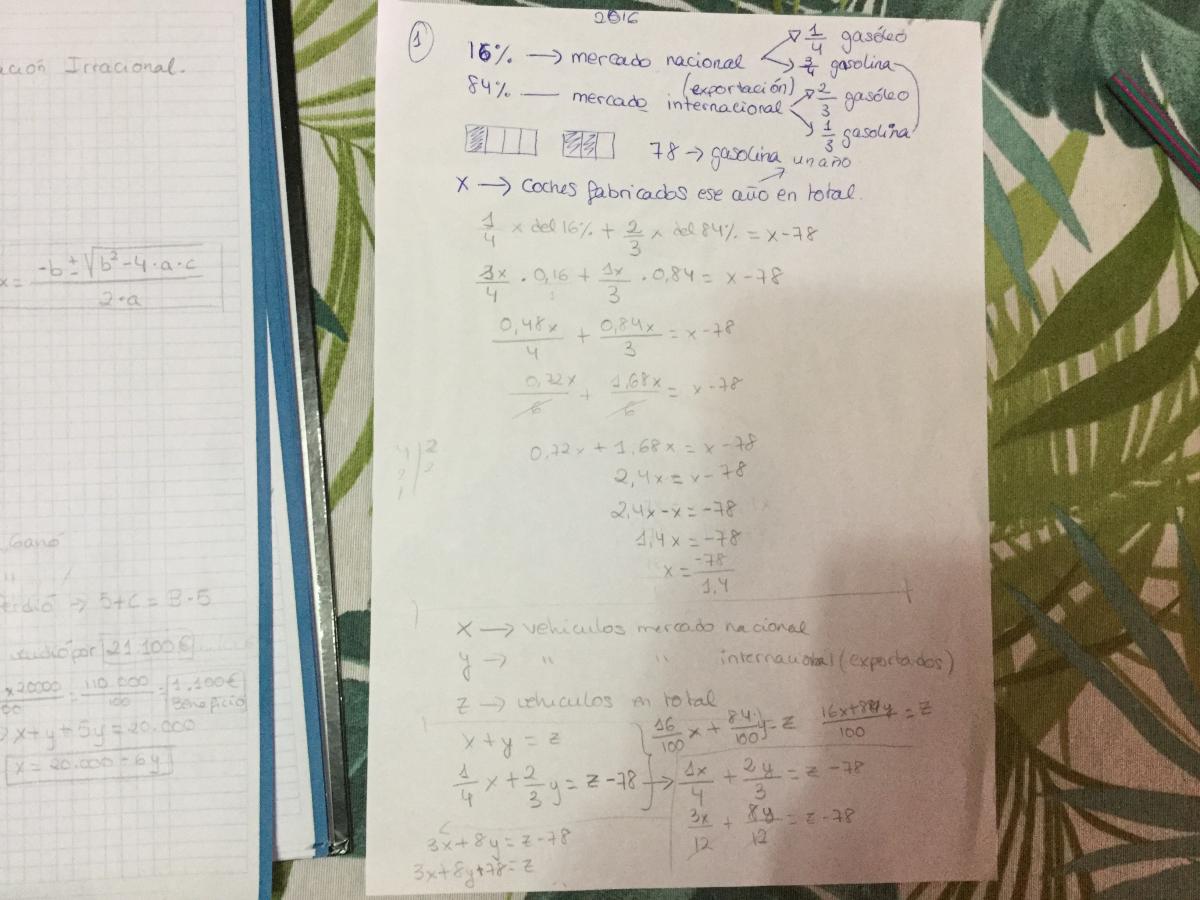 ación Irracional.
x = -b ± √b² - 4·a·c / 2·a
Ganó
"
→ 5+C = B-5
por 21.100€
x20000 = 110.000 / 100 = 1.100€ Beneficio
x+y+5y = 20.000
x = 20.000 - 6y
2016
1
16% → mercado nacional
1/4 gasóleo
3/4 gasolina
(exportación)
84% — mercado internacional
2/3 gasóleo
1/3 gasolina
78 → gasolina un año
x → coches fabricados ese año en total.
1/4 x del 16% + 2/3 x del 84% = x-78
3x/4 · 0,16 + 1x/3 · 0,84 = x-78
0,48x/4 + 0,84x/3 = x-78
0,72x/6 + 1,68x/6 = x-78
0,72x + 1,68x = x-78
2,4x = x-78
2,4x-x = -78
1,4x = -78
x = -78/1,4
x → vehiculos mercado nacional
y → " " internacional (exportados)
z → vehiculos en total
x+y = z
16/100 x + 84/100 y = z
16x+84y/100 = z
1/4 x + 2/3 y = z-78 → 1x/4 + 2y/3 = z-78
3x/12 + 8y/12 = z-78
3x+8y = z-78
3x+8y+78 = z